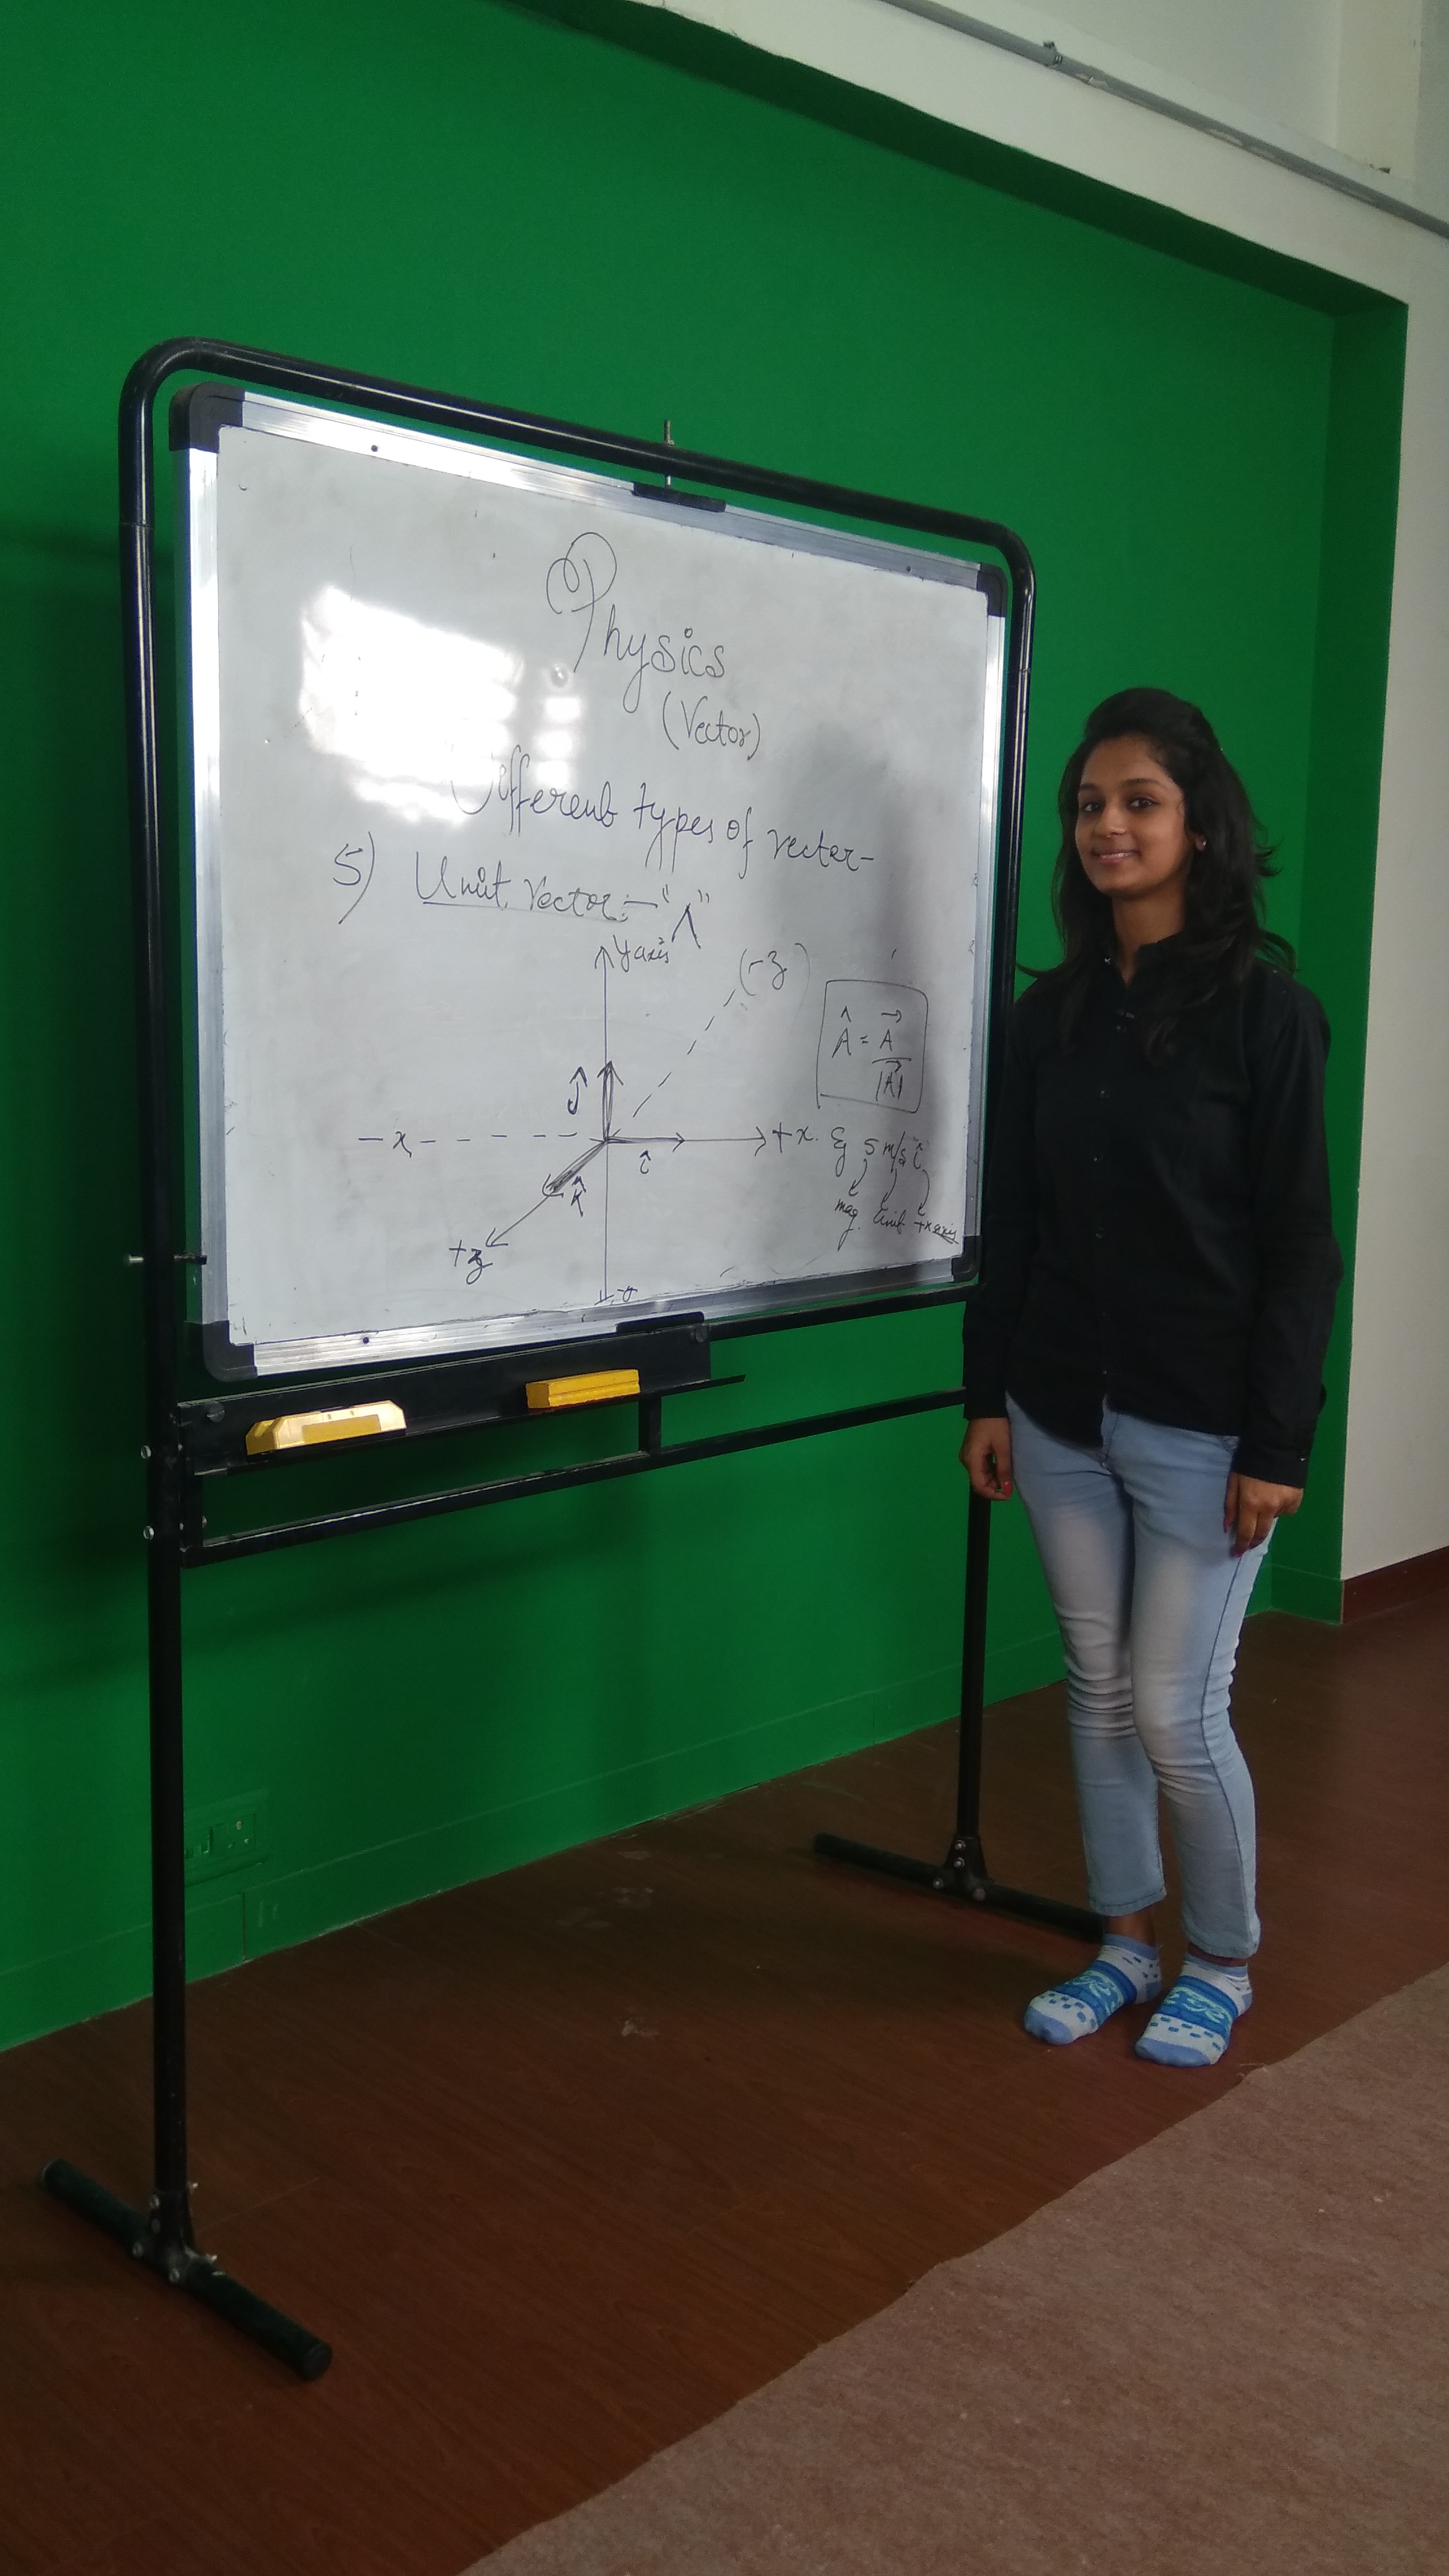 Physics
(Vector)
Different types of vector-
5) Unit Vector :- "^"
y axis
(-z)
Â = A⃗ / |A⃗|
ĵ
-x
+x
î
k̂
+z
Eg 5 m/s î
mag. Unit +x axis